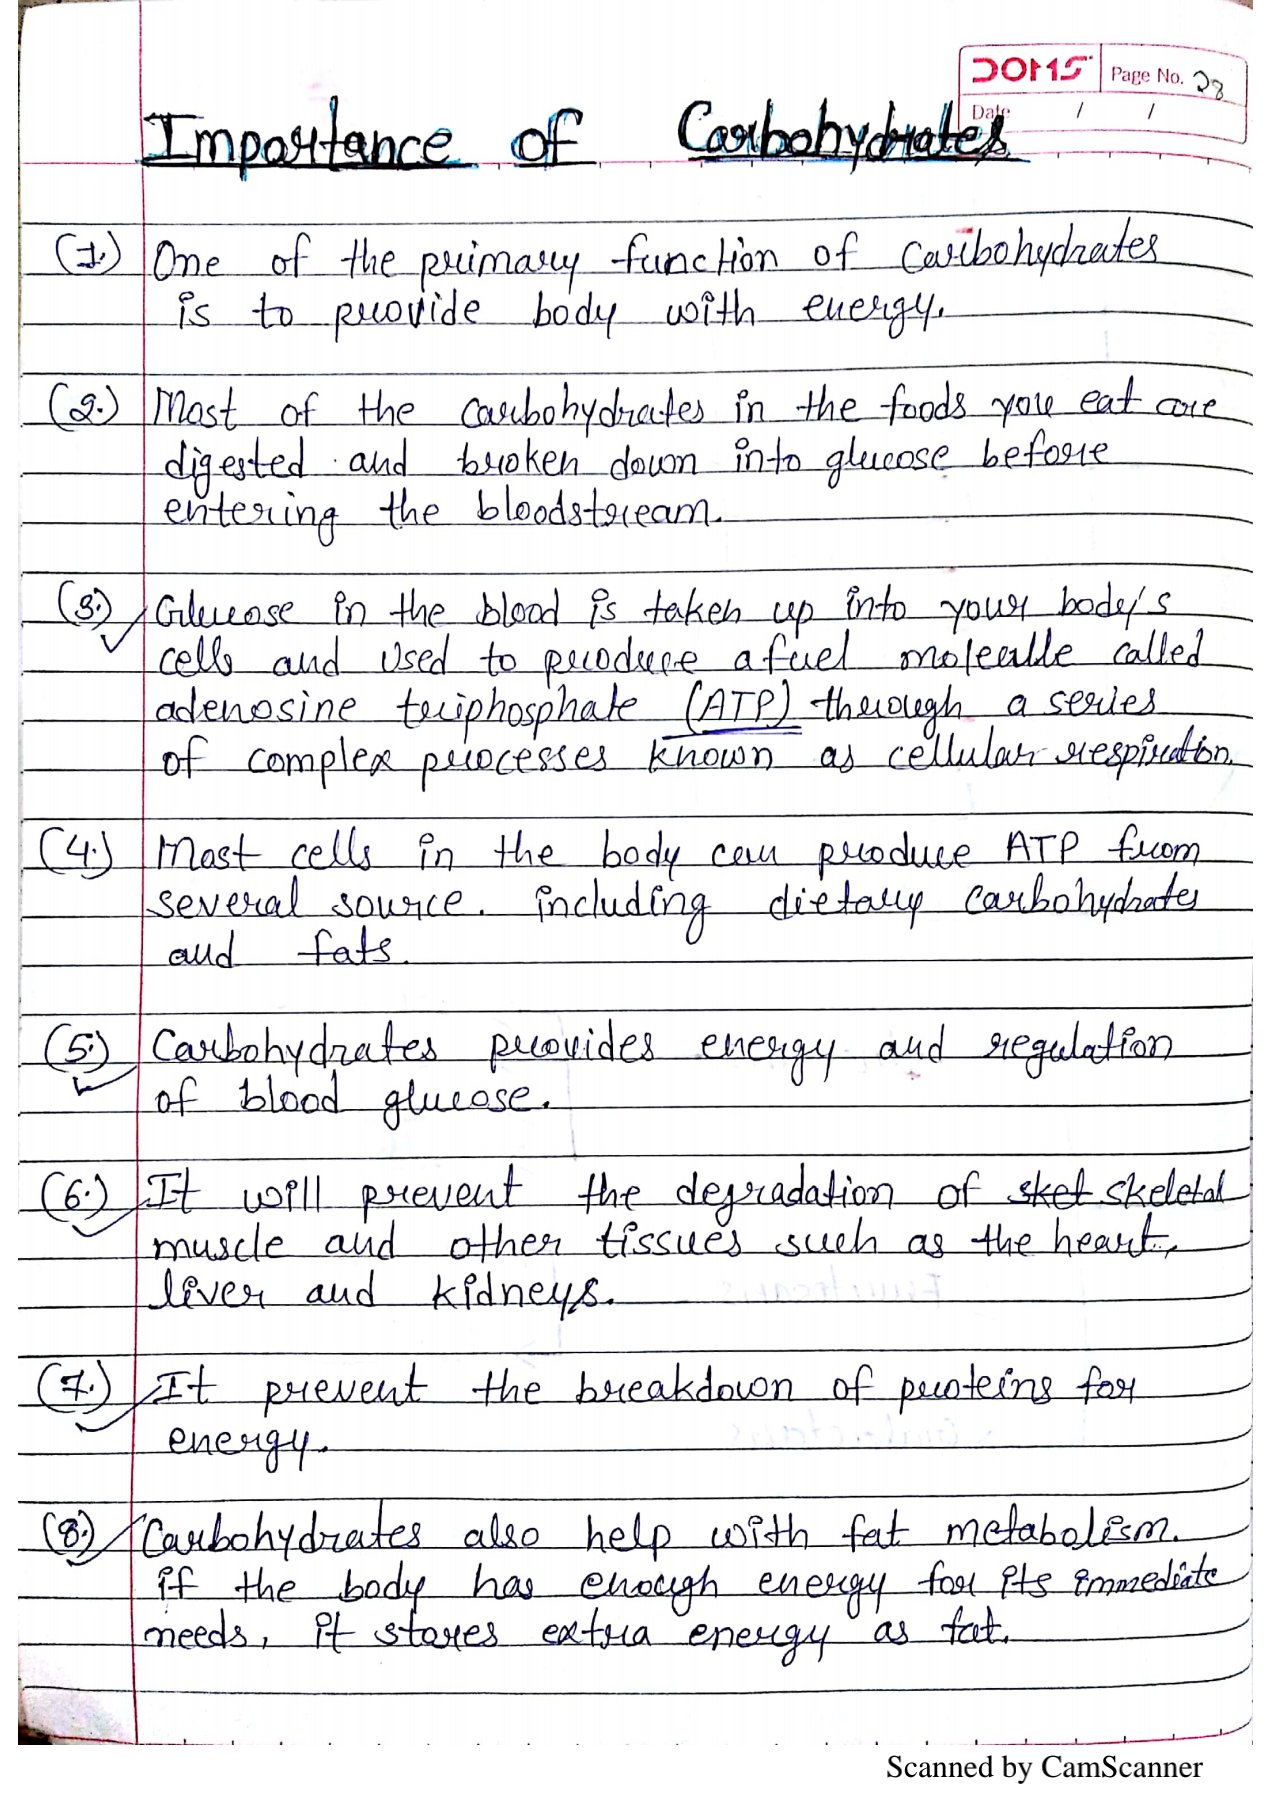 DOMS Page No. 28
Date / /
Importance of Carbohydrates
(1.) One of the primary function of Carbohydrates
is to provide body with energy.
(2.) Most of the carbohydrates in the foods you eat are
digested and broken down into glucose before
entering the bloodstream.
(3.) Glucose in the blood is taken up into your body's
cells and used to produce a fuel molecule called
adenosine triphosphate (ATP) through a series
of complex processes known as cellular respiration.
(4.) Most cells in the body can produce ATP from
several source. including dietary carbohydrates
and fats.
(5.) Carbohydrates provides energy and regulation
of blood glucose.
(6.) It will prevent the degradation of sket skeletal
muscle and other tissues such as the heart,
liver and kidneys.
(7.) It prevent the breakdown of proteins for
energy.
(8.) Carbohydrates also help with fat metabolism.
if the body has enough energy for its immediate
needs, it stores extra energy as fat.
Scanned by CamScanner